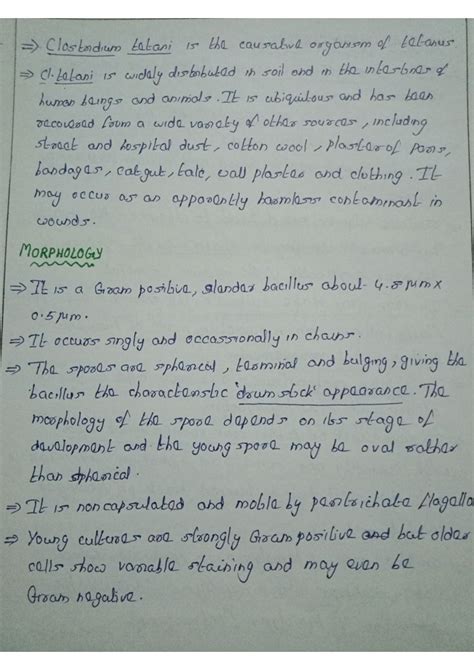 ⇒ Clostridium tetani is the causative organism of tetanus
⇒ Cl. tetani is widely distributed in soil and in the intestines of
human beings and animals. It is ubiquitous and has been
recovered from a wide variety of other sources, including
street and hospital dust, cotton wool, plaster of paris,
bandages, catgut, talc, wall plaster and clothing. It
may occur as an apparently harmless contaminant in
wounds.
MORPHOLOGY
⇒ It is a Gram positive, slender bacillus about 4.8 µm x
0.5 µm.
⇒ It occurs singly and occassionally in chains.
⇒ The spores are spherical, terminal and bulging, giving the
bacillus the characteristic 'drum stick' appearance. The
morphology of the spore depends on its stage of
development and the young spore may be oval rather
than spherical.
⇒ It is noncapsulated and motile by peritrichate flagella
⇒ Young cultures are strongly Gram positive and but older
cells show variable staining and may even be
Gram negative.